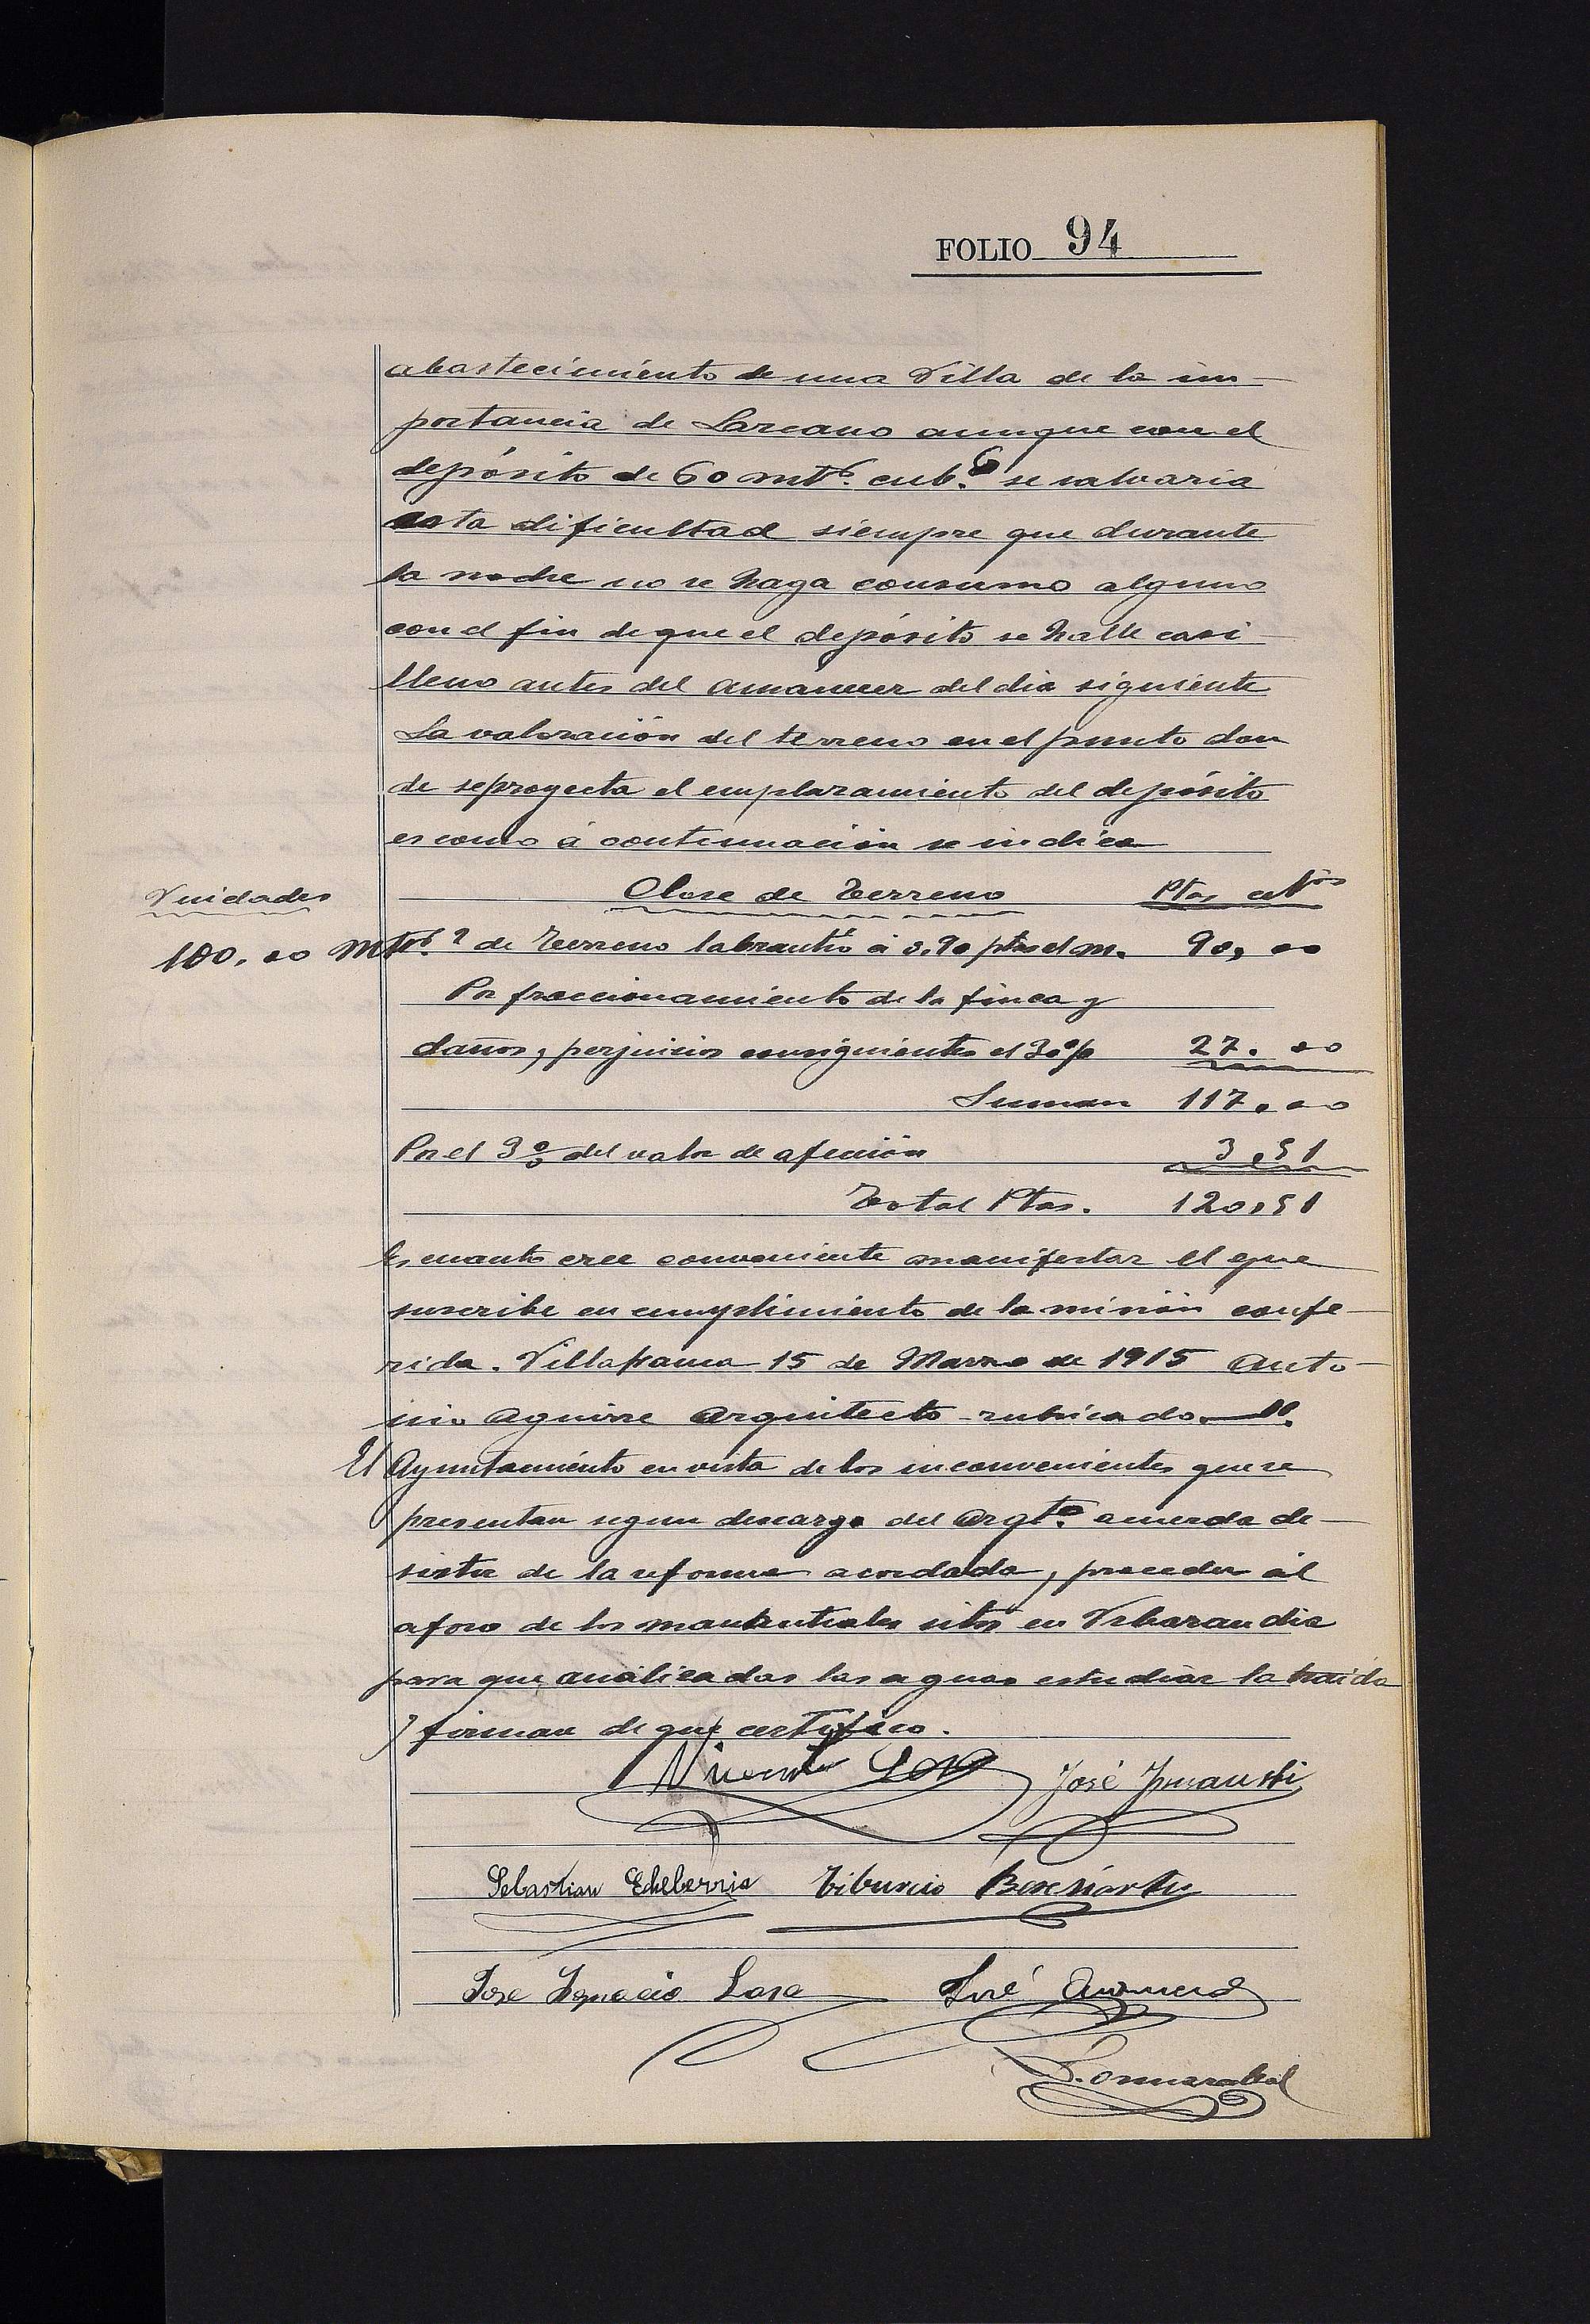 FOLIO 94
abastecimiento de una Villa de la im-
portancia de Lazcano aunque con el
depósito de 60 mts. cub.s se salvaria
esta dificultad siempre que durante
la noche no se haga consumo alguno
con el fin de que el depósito se halle casi
lleno antes del amanecer del dia siguiente
La valoración del terreno en el punto don
de se proyecta el emplazamiento del depósito
es como á continuación se indica
Unidades Clase de Terreno Ptas cts
100,00 Mtos. 2 de Terreno labrantío á 0,90 ptas el m. 90,00
Por fraccionamiento de la finca y
daños y perjuicios consiguientes el 30% 27.00
Suman 117.00
Por el 3% del valor de afección 3,51
Total Ptas. 120,51
Es cuanto cree conveniente manifestar el que
suscribe en cumplimiento de la misión confe-
rida. Villafranca 15 de Marzo de 1915 Anto-
nio Aguirre Arquitecto - rubricado.
El Ayuntamiento en vista de los inconvenientes que se
presentan segun descargo del Arqto. acuerda de-
sistir de la reforma acordada, y proceder al
aforo de los manantiales sitos en Urbarandia
para que analicadas las aguas estudiar la traida
y firman de que certifico.
Vicente José
Sebastian Echeberria Tiburcio
Jose Ignacio Lasa José